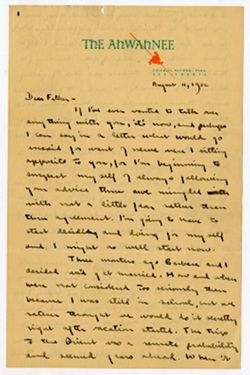 THE AHWAHNEE
YOSEMITE NATIONAL PARK
CALIFORNIA
August 11, 1932
Dear Father -
If I've ever wanted to talk over
anything with you, it's now, and perhaps
I can say in a letter what would go
unsaid for want of nerve were I sitting
opposite to you, for I'm beginning to
suspect my self of always following
your advice thru awe mingled
with not a little fear rather than
thru agreement. I'm going to have to
start deciding and doing for my self
and I might as well start now.
Three months ago Barbara and I
decided we'd get married. How and when
were not considered too seriously then
because I was still in school, but we
rather thought we would do it secretly
right after vacation started. The trip
to the Orient was a remote probability
and seemed years ahead. When it